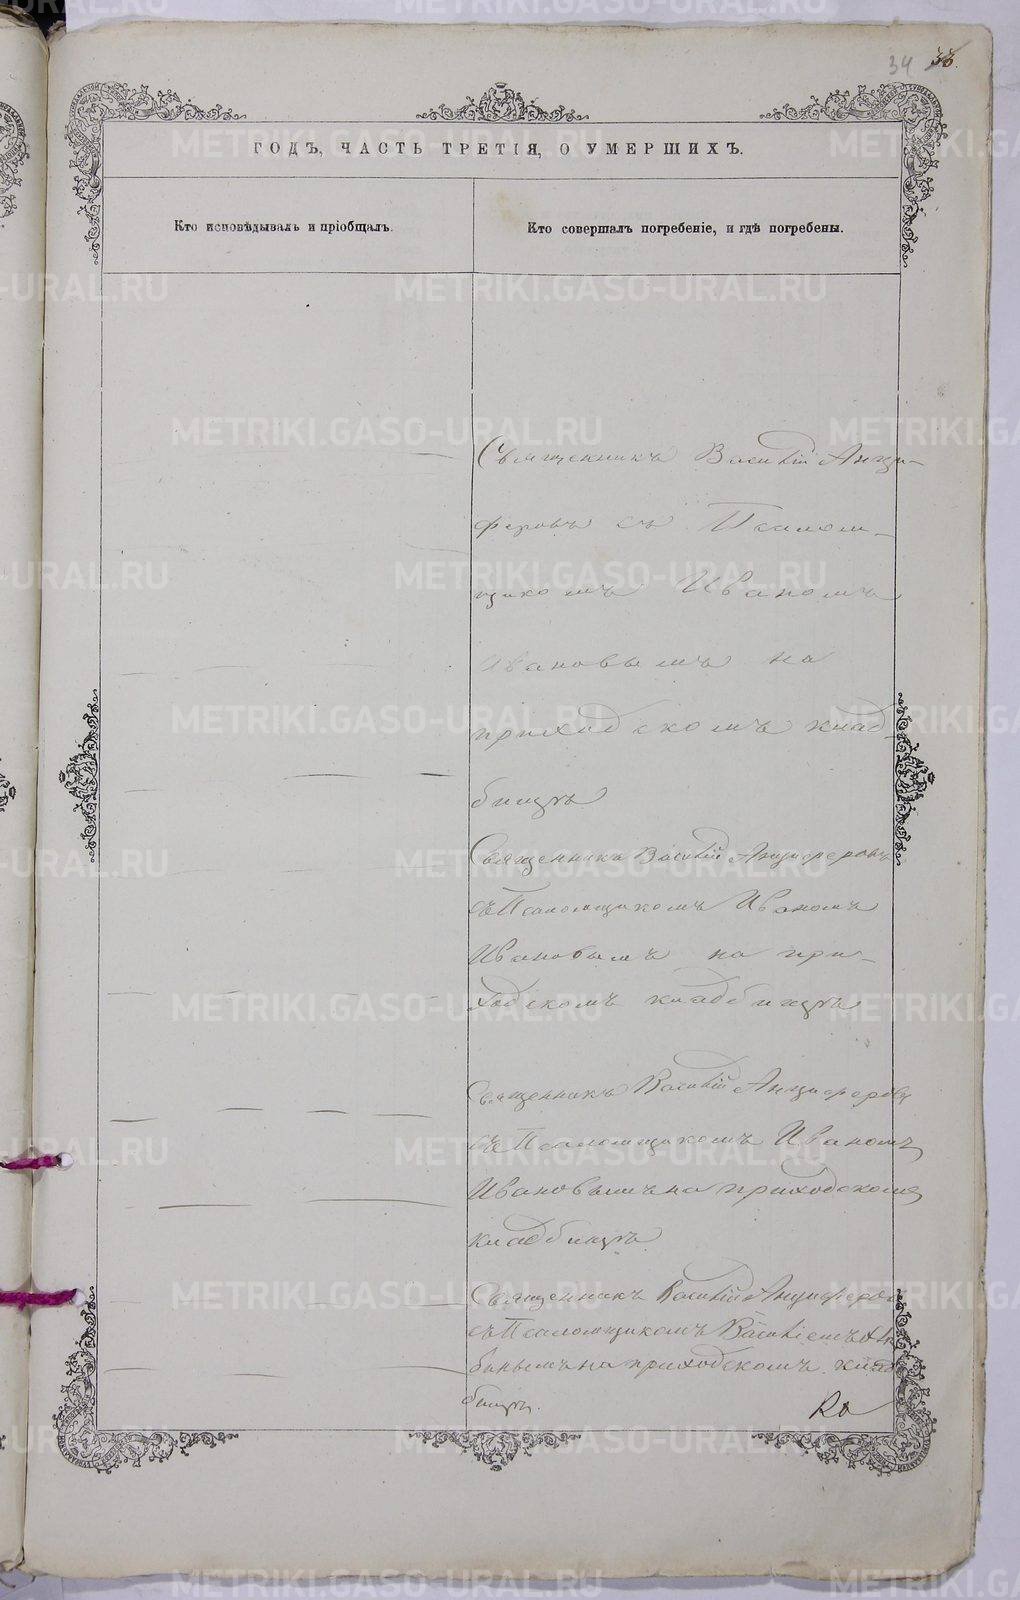 34 33.
ГОДЪ, ЧАСТЬ ТРЕТІЯ, О УМЕРШИХЪ.
Кто исповѣдывалъ и пріобщалъ.
Кто совершалъ погребеніе, и гдѣ погребены.
Священникъ Василій Анци-
феровъ съ Псалом-
щикомъ Иваномъ
Ивановымъ на
приходскомъ клад-
бищѣ
Священникъ Василій Анциферовъ
съ Псаломщикомъ Иваномъ
Ивановымъ на при-
ходскомъ кладбищѣ
Священникъ Василій Анциферовъ
съ Псаломщикомъ Иваномъ
Ивановымъ на приходскомъ
кладбищѣ
Священникъ Василій Анциферовъ
съ Псаломщикомъ Василіемъ
на приходскомъ клад
бищѣ.
METRIKI.GASO-URAL.RU